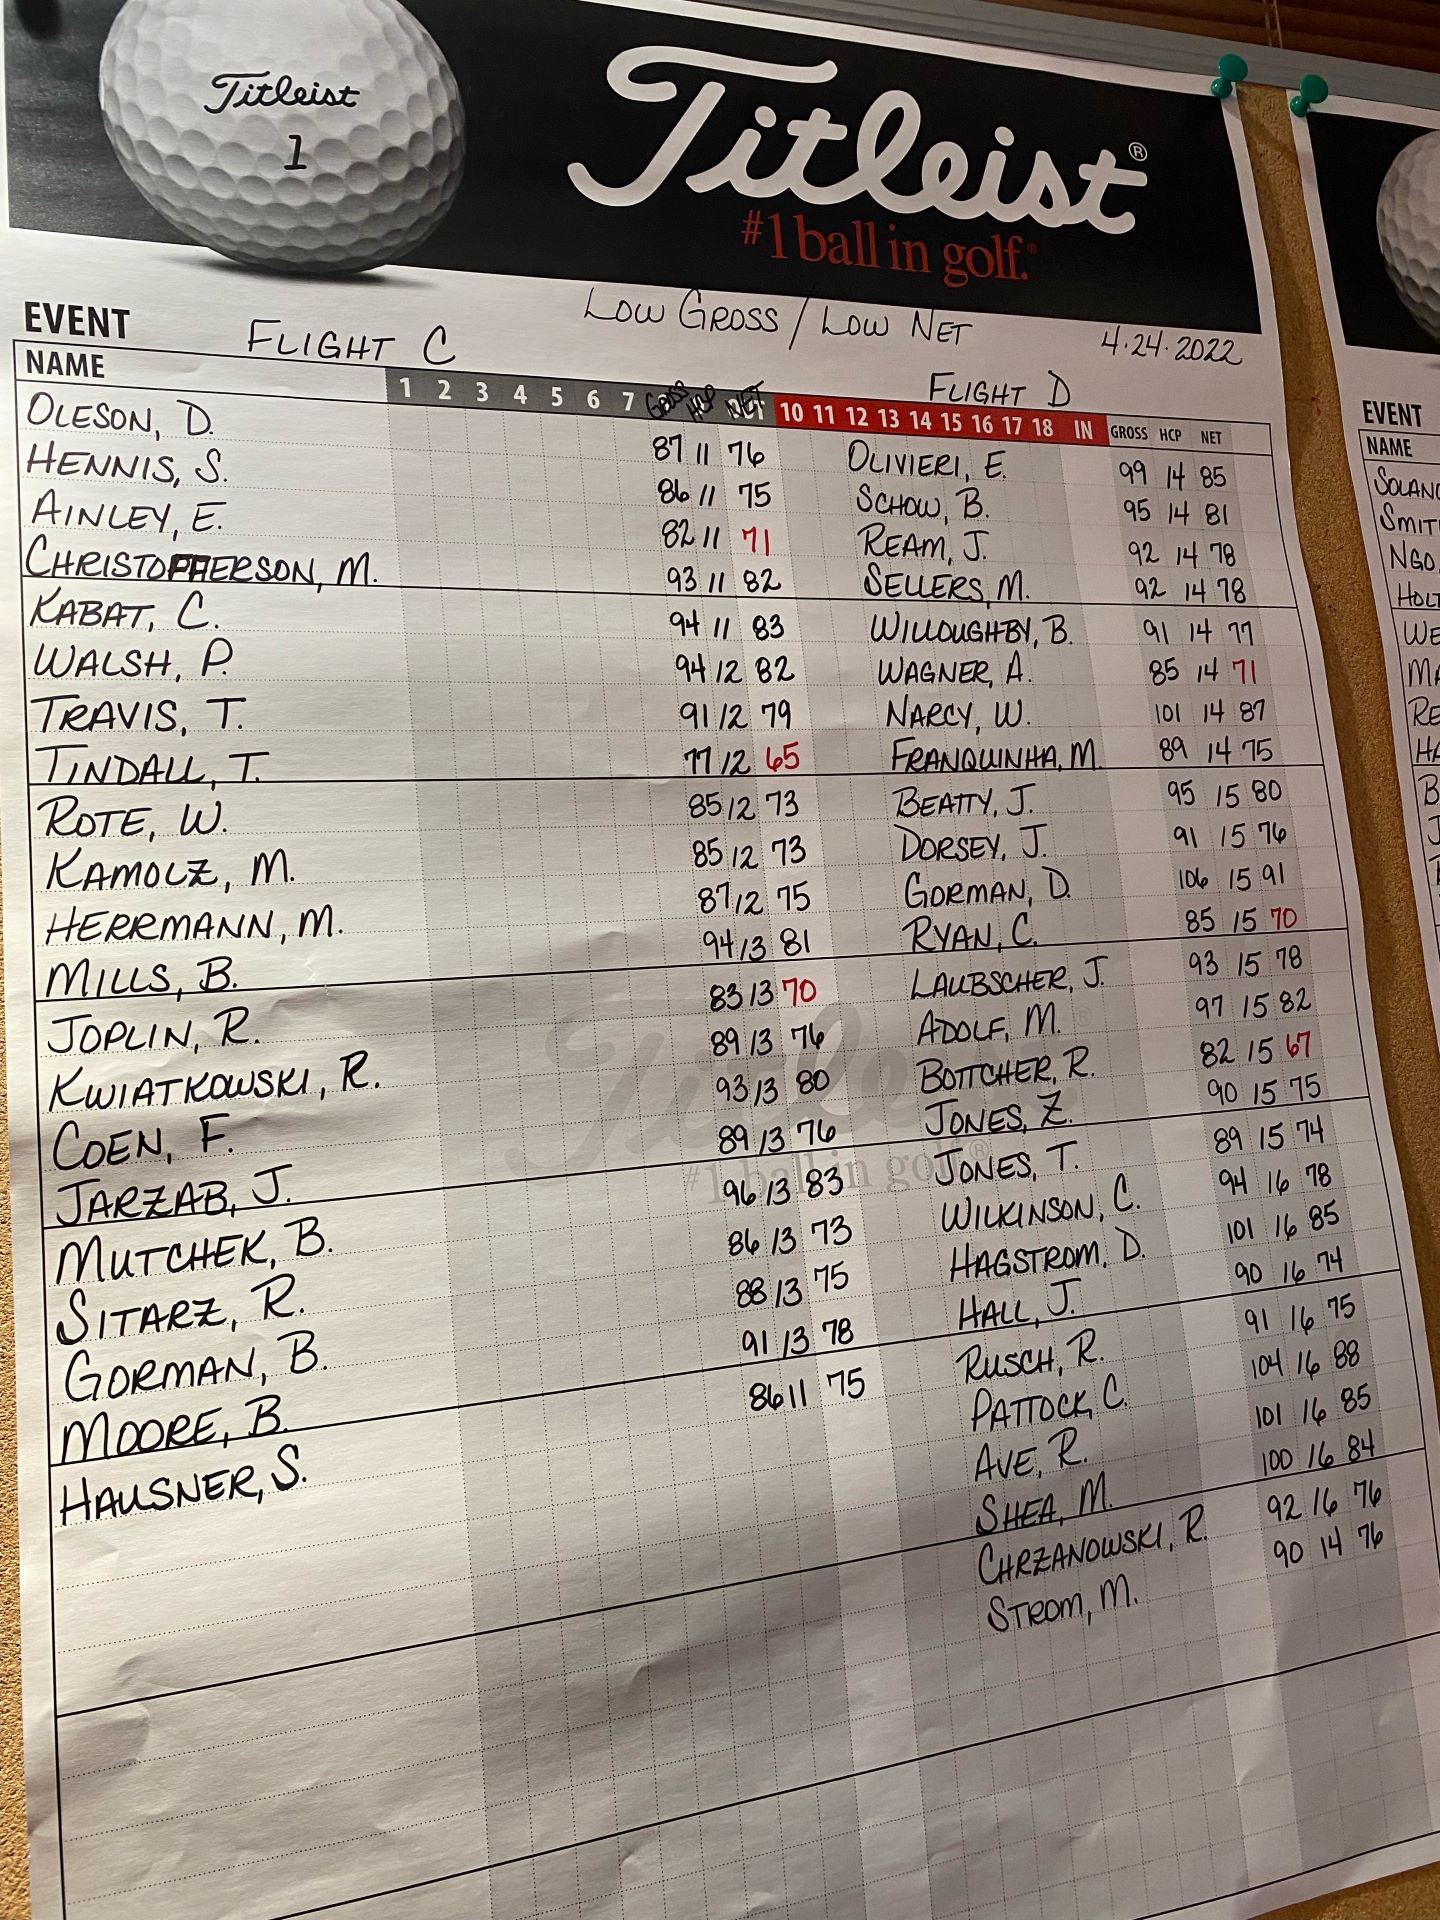 Titleist
1
Titleist®
#1 ball in golf.®
EVENT FLIGHT C LOW GROSS / LOW NET 4.24.2022
FLIGHT D
NAME 1 2 3 4 5 6 7 GROSS HCP NET 10 11 12 13 14 15 16 17 18 IN GROSS HCP NET
OLESON, D. 87 11 76 OLIVIERI, E. 99 14 85
HENNIS, S. 86 11 75 SCHOW, B. 95 14 81
AINLEY, E. 82 11 71 REAM, J. 92 14 78
CHRISTOFFERSON, M. 93 11 82 SELLERS, M. 92 14 78
KABAT, C. 94 11 83 WILLOUGHBY, B. 91 14 77
WALSH, P. 94 12 82 WAGNER, A. 85 14 71
TRAVIS, T. 91 12 79 NARCY, W. 101 14 87
TINDALL, T. 77 12 65 FRANQUINHA, M. 89 14 75
ROTE, W. 85 12 73 BEATTY, J. 95 15 80
KAMOLZ, M. 85 12 73 DORSEY, J. 91 15 76
HERRMANN, M. 87 12 75 GORMAN, D. 106 15 91
MILLS, B. 94 13 81 RYAN, C. 85 15 70
JOPLIN, R. 83 13 70 LAUBSCHER, J. 93 15 78
KWIATKOWSKI, R. 89 13 76 ADOLF, M. 97 15 82
COEN, F. 93 13 80 BOTTCHER, R. 82 15 67
JARZAB, J. 89 13 76 JONES, Z. 90 15 75
MUTCHEK, B. 96 13 83 JONES, T. 89 15 74
SITARZ, R. 86 13 73 WILKINSON, C. 94 16 78
GORMAN, B. 88 13 75 HAGSTROM, D. 101 16 85
MOORE, B. 91 13 78 HALL, J. 90 16 74
HAUSNER, S. 86 11 75 RUSCH, R. 91 16 75
PATTOCK, C. 104 16 88
AVE, R. 101 16 85
SHEA, M. 100 16 84
CHRZANOWSKI, R. 92 16 76
STROM, M. 90 14 76
#1 ball in golf®
EVENT
NAME
SOLAN
SMIT
NGO,
HOLT
WE
MA
RE
HA
B
J